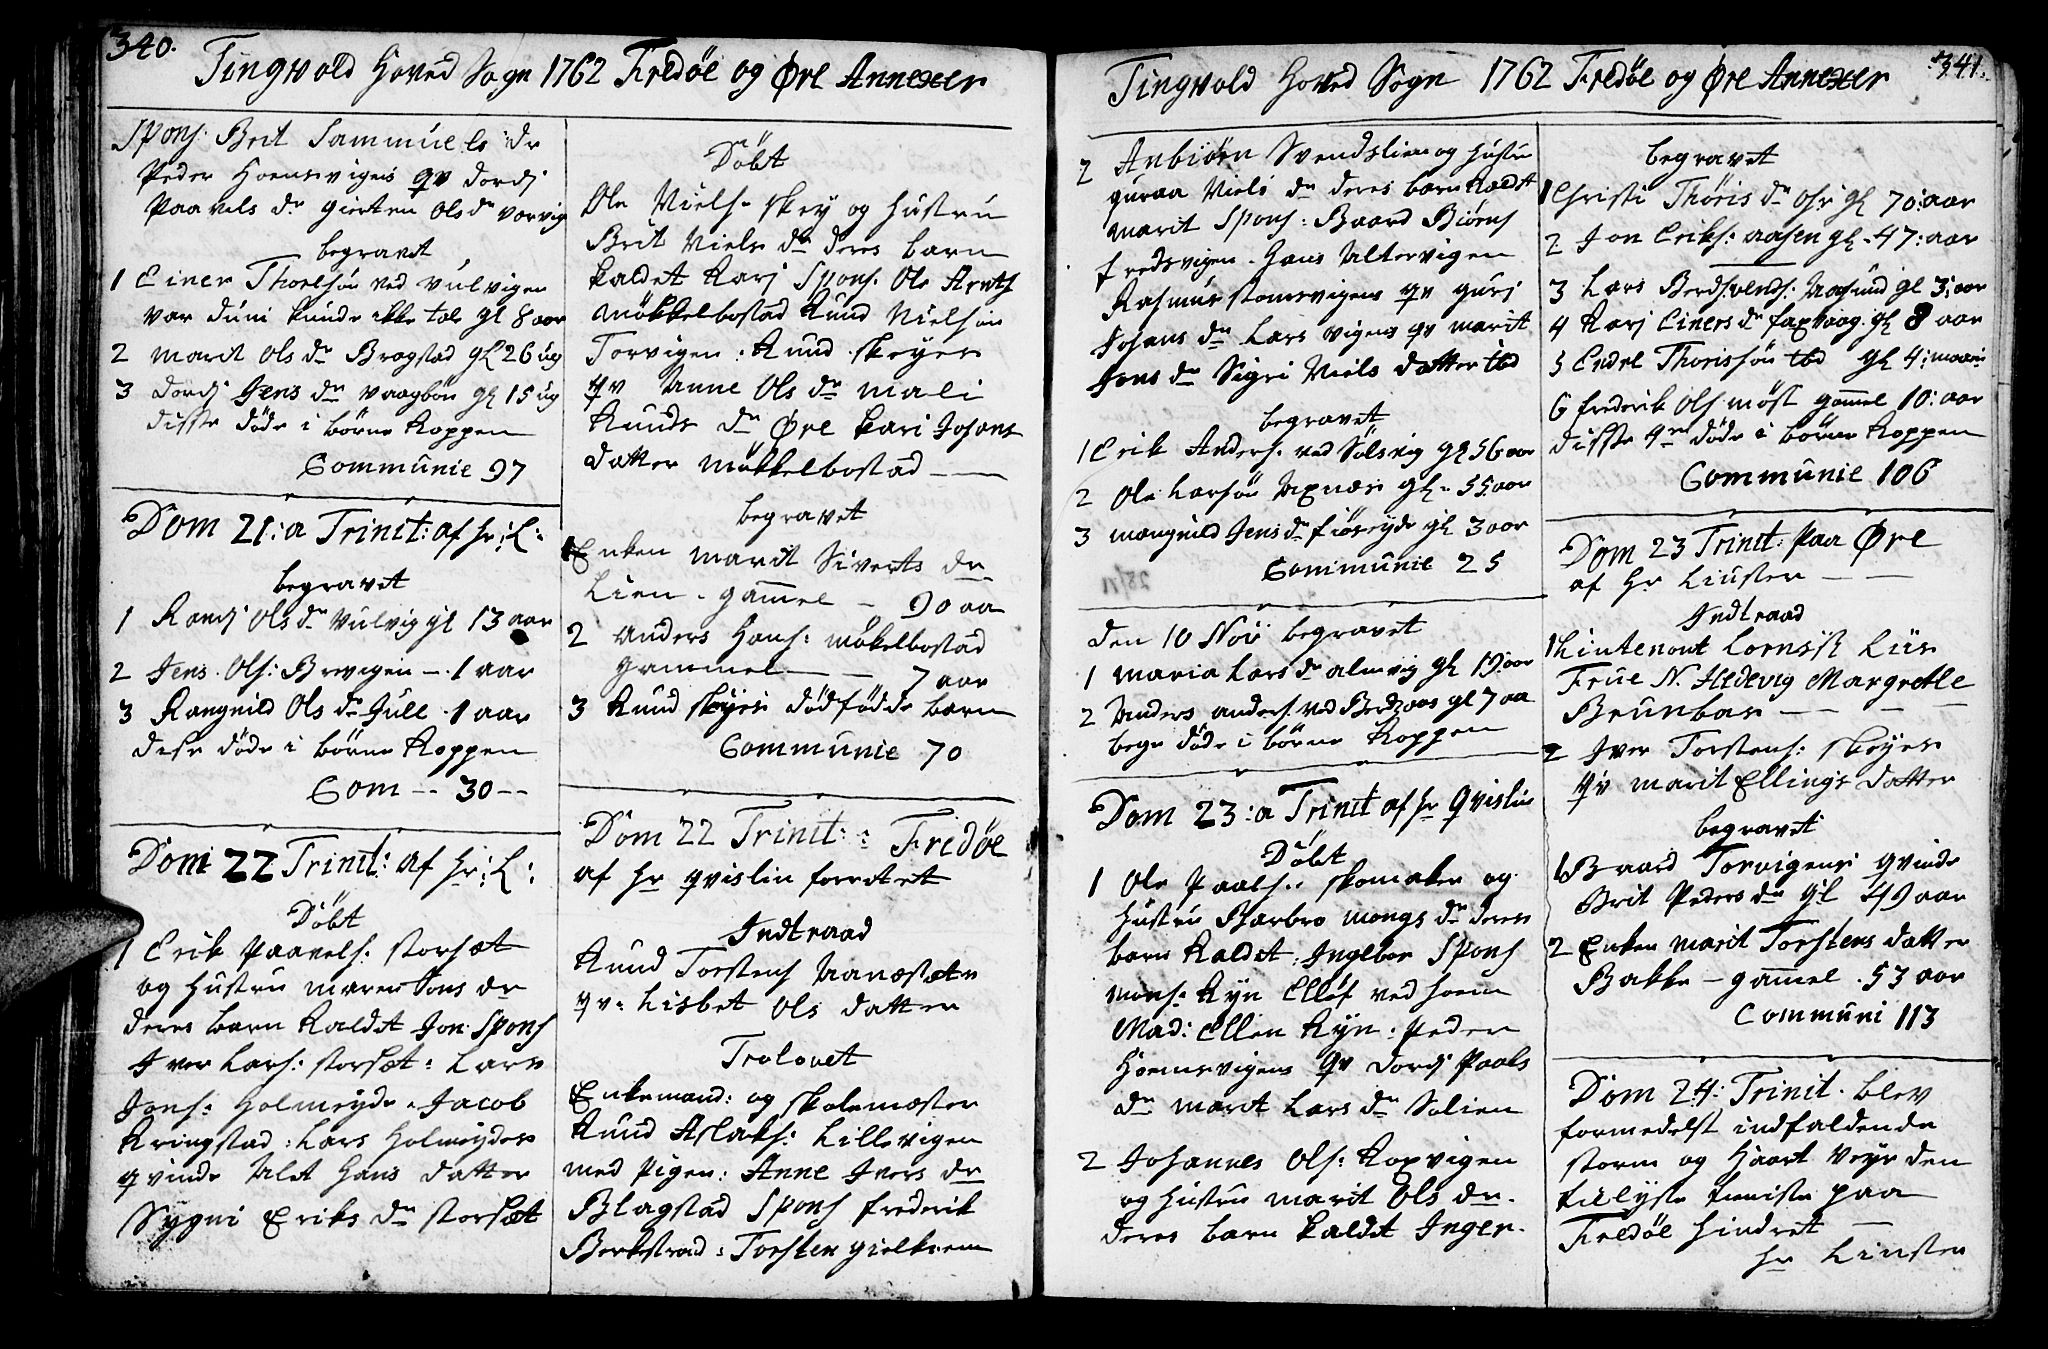 340.
Tingvold Hoved Sogn 1762 Fredøe og Øre Annexer
Spons: Brit Sammuels: dr
Peder Hoensvigens qv dordj
Paavels dr gierten Ols dr vorvig
begravet
1 Einer Thoelsøn ved Vulvigen
var dum kunde ikke tale gl 8 aar
2 marit Ols dr Bragstad gl 26 ug
3 dordj Jens dr vaagbøn gl 15 ug
disse døde i børne Koppen
Communie 97
Dom 21: a Trinit: af hr: L:
begravet
1 Randj Ols dr Vulvig gl 13 aar
2 Jens Ols: Brevigen - 1 aar
3 Rangnild Ols dr Gull 1 aar
disse døde i børne Koppen
Com -- 30 --
Dom 22 Trinit: af hr: L:
Døbt
1 Erik Paavels: storsæt
og Hustru maren Jons dr
deres barn Kaldet Jon Spons
Iver Lars: storsæt: Lars
Jons: Holmeyde. Jacob
Kringstad: Lars Holmeydes
qvinde Alet Hans datter
Sygni Eriks dr storsæt
Døbt
Ole Niels: skey og Hustru
Brit Niels dr deres barn
kaldet Karj Spons. Ole Arnts
møkkelbostad Knud Nielsøn
Torvigen: Knud skeyes
qv Anne Ols dr mali
Knuds dr Øre kari Johans
datter møkkelbostad
begravet
1 Enken marit Siverts dr
Lien. gammel - 90 aa
2 Anders Hans: møkelbostad
gammel - 7 aar
3 Knud skeyes dødfødde barn
Communie 70
Dom 22 Trinit: : Fredøe
af hr qvislin forrettet
Indtraad
Knud Torstens Aanæssætr
qv: Lisbet Ols datter
Trolovet
Enkemand: og skolemæster
Knud Aslaks: Lillevigen
med Pigen: Anne Ivers dr
Blagstad Spons frederik
Berkstrad: Torsten gielknem
341.
Tingvold Hoved Sogn 1762 Fredøe og Øre Annexer
2 Anbiørn Svendslien og hustru
guraa Niels dr deres barn kaldt
marit Spons: Baard Biørns
fredsvigen. Hans Altervigen
Rasmus stomsvigens qv gurj
Johans dr Lars vigens qv marit
Jons dr Sigri Niels datter ibd
begravet
1 Erik Anders: ved Sølsvig gl 56 aar
2 Ole Larsøn Axnæs gl. 55 aar
3 mangnild Jens dr fiøseyde gl 3 aar
Communie 25
den 10 Nov begravet
1 maria Lars dr almvig gl 19 aar
2 Anders anders: ved gl 7 aa
begr døde i børne Koppen
Dom 23: a Trinit af hr Qvislin
Døbt
1 Ole Paals: skomaker og
Hustru Barbro mongs dr deres
barn Kaldet Ingebor Spons
Mons: Ryn Ellef ved hoem
Mad: Ellen Ryn: Peder
Hoemsvigens qv Dordj Paals
dr marit Lars dr Solien
2 Johannes Ols: Koxvigen
og Hustru marit Ols dr.
deres barn kaldt Inger.
begravet
1 Christi Thøris dr gl 70: aar
2 Jon Eriks: aasen gl. 47: aar
3 Lars gl 3; aar
4 Karj Einers dr faxvaag gl 8 aar
5 Endel Thorissøn ibd gl 4: maan
6 frederik Ols møst gammel 10: aar
disse 4re døde i børne Koppen
Communie 106
Dom 23 Trinit: paa Øre
af hr Liusten
Indtraad
1 Lieutenant Lornssk Liis
Frue N. Hedevig Margrethe
Brunbar
2 Iver Torstens: skeyes
qv marit Ellings datter
begravet
1 Baard Torvigens qvinde
Brit Peders dr gl 49 aar
2 Enken marit Torstens datter
Bakke - gammel. 53 aar
Communi 113
Dom 24: Trinit. blev
formedelst indfaldende
storm og haart Veyr den
tilyste tieniste paa
Fredøe Hindret
hr Linsten